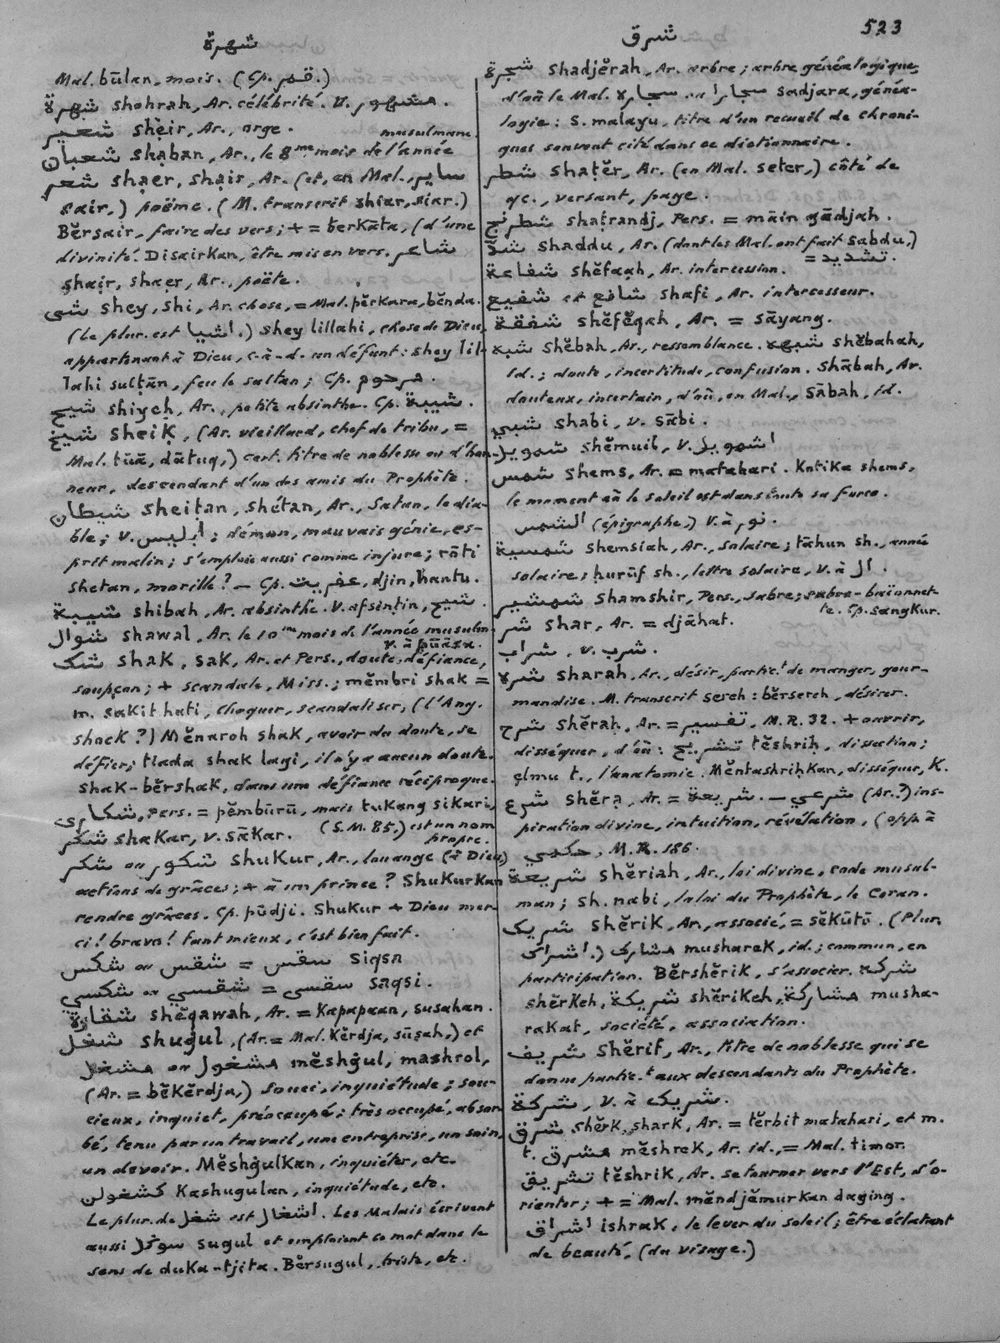 523
شهرة
Mal. būlan, mois. (Cp. قمر.)
شهرة shohrah, Ar. célébrité. V. مشهور.
شعير shẹir, Ar., orge.
musulmane.
شعبان shạban, Ar., le 8me mois de l'année
شعر shạer, shạir, Ar. (et, en Mal., ساير
sair,) poëme. (M. transcrit shiar, siar.)
Bĕrsair, faire des vers; + = berkāta, (d'une
divinité. Disairkan, être mis en vers. شاعر
shạir, shaer, Ar., poëte.
شى shey, shi, Ar. chose, = Mal. pĕrkara, bĕnda.
(Le plur. est اشيا.) shey lillahi, chose de Dieu,
appartenant à Dieu, c-à-d. un défunt: shey lil-
lahi sulṭān, feu le sultan; Cp. مرحوم.
شيح shiyeḥ, Ar., petite absinthe. Cp. شيبة.
شيخ sheik, (Ar. vieillard, chef de tribu, =
Mal. tūā, dātuq,) cert. titre de noblesse ou d'hon-
neur, descendant d'un des amis du Prophète.
شيطان sheitan, shétan, Ar., Satan, le dia-
ble; V. ابليس; démon, mauvais génie, es-
prit malin; s'emploie aussi comme injure; rōti
shetan, morille? — Cp. عفريت, djin, hantu.
شيبة shibah, Ar. absinthe. V. afsintin, شيح.
شوال shawal, Ar. le 10me mois de l'année musulm.
V. à pūāsa.
شك shak, sak, Ar. et Pers., doute, défiance,
soupçon; + scandale, Miss.; mĕmbri shak =
m. sakit hati, choquer, scandaliser, (l'Ang.
shock?) Mĕnaroh shak, avoir du doute, se
défier; tiada shak lagi, il n'y a aucun doute.
shak-bĕrshak, dans une défiance réciproque.
شكارى, Pers. = pĕmbūrū, mais tukang sikari,
(S.M. 85,) est un nom propre.
شكر shakar, v. sākar.
شكر ou شكور shukur, Ar., louange (à Dieu,)
actions de grâces; + à un prince? Shukurkan
rendre grâces. Cp. pūdji. Shukur + Dieu mer-
ci! bravo! tant mieux, c'est bien fait.
شكس ou شقس = سقس siqsa
شكسي ou شقسي = سقسى saqsi.
شقاوة shĕqawah, Ar. = Kapapaan, susahan.
شغل shuġul, (Ar. = Mal. kĕrdja, sūsah,) et
مشغول ou مشغل mĕshġul, mashrol,
(Ar. = bĕkĕrdja,) souci, inquiétude; sou-
cieux, inquiet, préoccupé; très occupé, absor-
bé, tenu par un travail, une entreprise, un soin,
un devoir. Mĕshġulkan, inquiéter, etc.
كشغولن Kashugulan, inquiétude, etc.
Le plur. de شغل est اشغال. Les Malais écrivent
aussi سوگل sugul et emploient ce mot dans le
sens de duka-tjita. Bĕrsugul, triste, etc.
شرق
شجرة shadjĕrah, Ar. arbre; arbre généalogique,
d'où le Mal. سجاره ou سجارا sadjara, généa-
logie: S. malayu, titre d'un recueil de chroni-
ques souvent cité dans ce dictionnaire.
شطر shaṭĕr, Ar. (en Mal. seter,) côté de
qc., versant, page.
شطرنج shaṭrandj, Pers. = māin gādjah.
شدّ shaddu, Ar. (dont les Mal. ont fait sabdu,)
= تشديد.
شفاعة shĕfạah, Ar. intercession.
شفيع et شافع shafi, Ar. intercesseur.
شفقة shĕfĕqah, Ar. = sāyang.
شبه shĕbah, Ar., ressemblance. شبهه shĕbahah,
id.; doute, incertitude, confusion. Shābah, Ar.
douteux, incertain, d'où, en Mal., sābah, id.
شبي shabi, v. sābi.
شمويل shĕmuil, v. اشمويل
شمس shems, Ar. = matahari. Kṅtika shems,
le moment où le soleil est dans toute sa force.
الشمس (épigraphe.) V. à نور.
شمسية shemsiah, Ar., solaire; tāhun sh., année
solaire; ḥurūf sh., lettre solaire, v. à ال.
شمشير shamshir, Pers., sabre; sabre-baïonnet-
te. Cp. sangkur.
شر shar, Ar. = djāhat.
شراب, v. شرب.
شره sharah, Ar., désir, partic.t de manger, gour-
mandise. M. transcrit sereh: bĕrsereh, désirer.
شرح shĕraḥ, Ar. = تفسير, M.R. 32. + ouvrir,
disséquer, d'où: تشريح tĕshriḥ, dissection;
ẹlmu t., l'anatomie. Mĕntashriḥkan, disséquer, K.
شرع shĕrạ, Ar. = شريعة. — شرعي (Ar.?) ins-
piration divine, intuition, révélation, (opp. à
حكمي, M.R. 186.
شريعة shĕriah, Ar., loi divine, code musul-
man; sh. nabi, la loi du Prophète, le Coran.
شريك shĕrik, Ar., associé, = sĕkūtū. (Plur.
اشراك.) مشارك musharak, id.; commun, en
participation. Bĕrshĕrik, s'associer. شركة
shĕrkeh, شريكة shĕrikeh, مشاركة musha-
rakat, société, association.
شريف shĕrif, Ar., titre de noblesse qui se
donne partic.t aux descendants du Prophète.
شركة, V. à شريك.
شرق shĕrk, shark, Ar. = tĕrbit matahari, et m.
t. مشرق mĕshrek, Ar. id., = Mal. timor.
تشريق tĕshrik, Ar. se tourner vers l'Est, s'o-
rienter; + = Mal. mĕndjĕmurkan daging.
اشراق ishrak, le lever du soleil; être éclatant
de beauté, (du visage.)